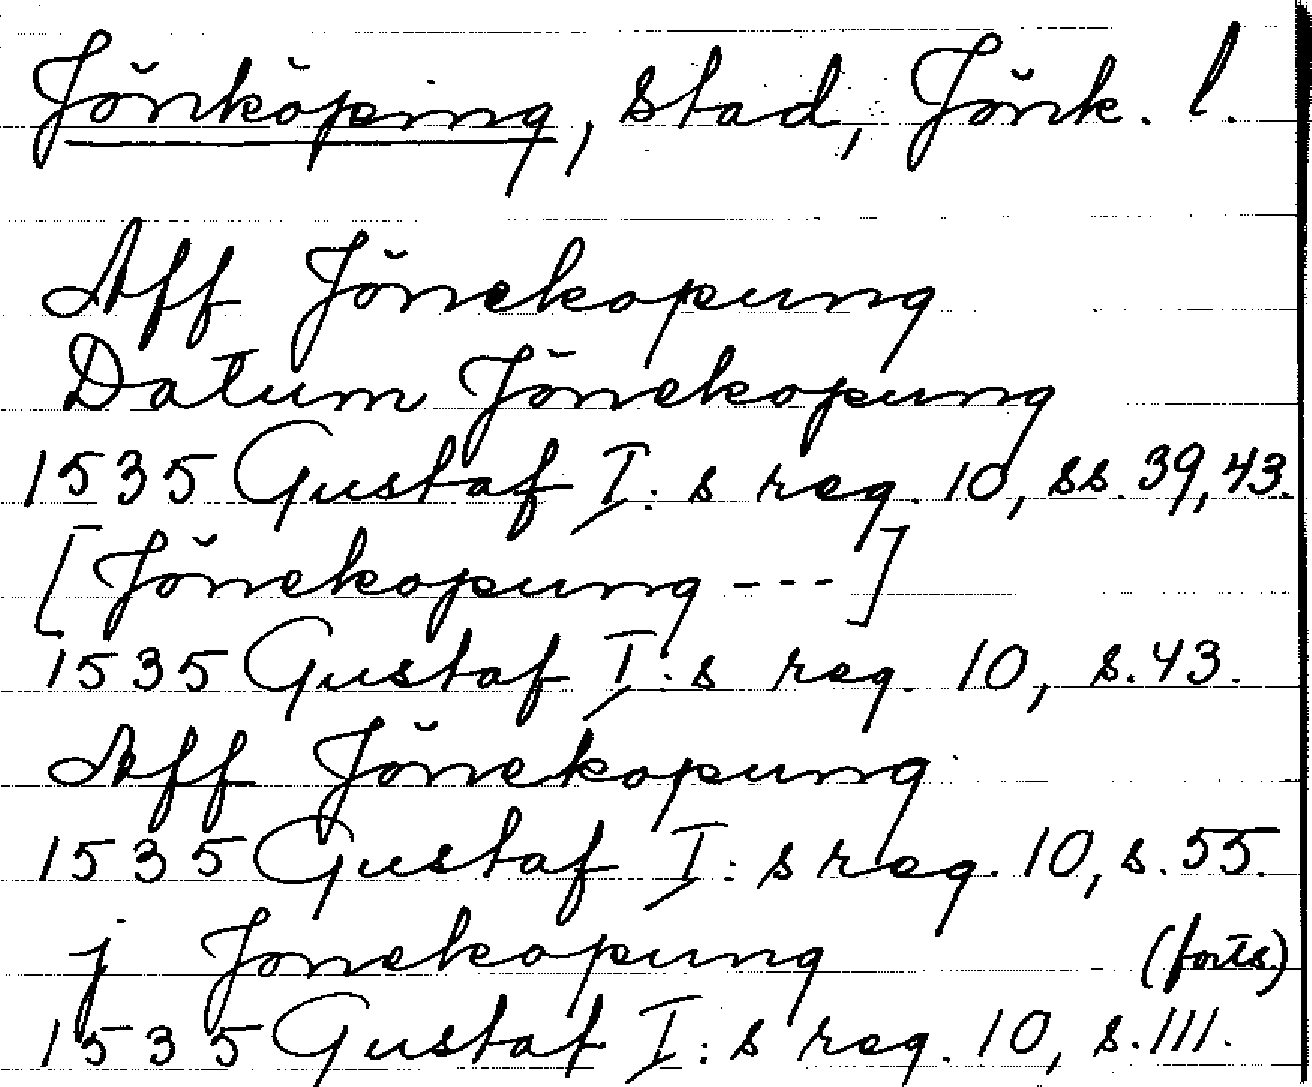 Jönköping, stad, Jönk. l.
Aff Jönekopung
Datum Jönekopung
1535 Gustaf I:s reg. 10, ss. 39, 43.
[Jönekopung ---]
1535 Gustaf I:s reg. 10, s. 43.
Aff Jönekopung
1535 Gustaf I:s reg. 10, s. 55.
j Jonekopung (forts)
1535 Gustaf I:s reg. 10, s. 111.